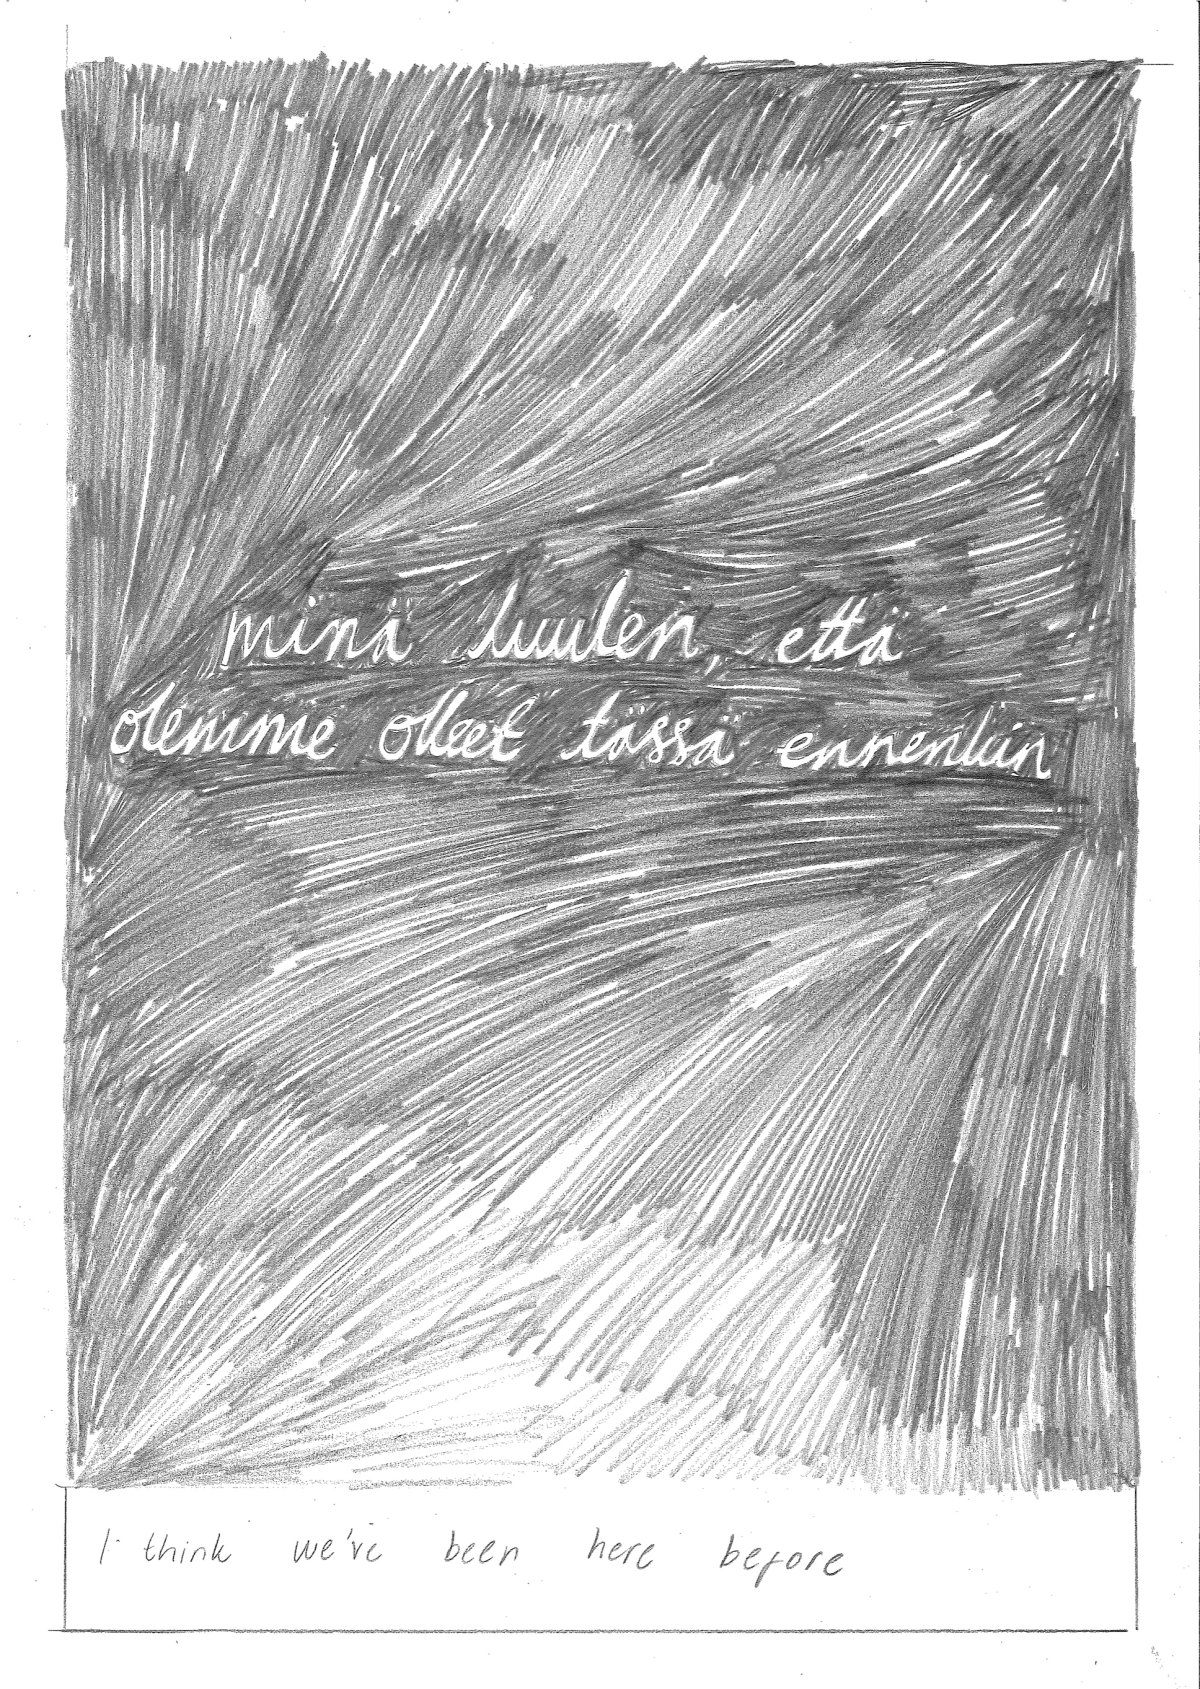 minä luulen, että
olemme olleet tässä ennenkin
I think we've been here before